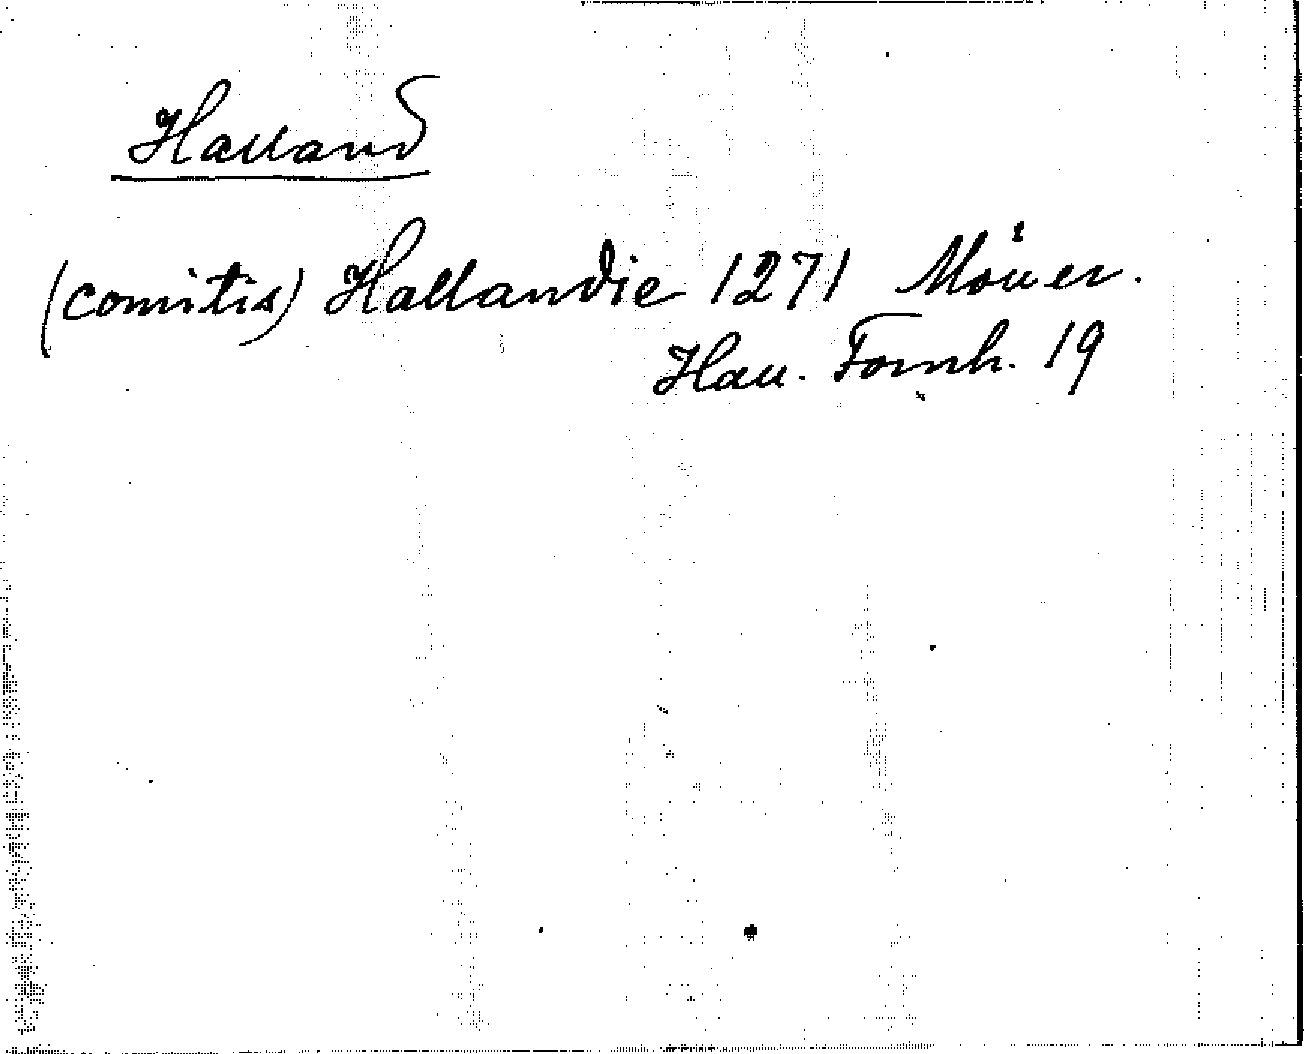 Halland
(comitis) Hallandie 1271 Möller.
Hall. Fornh. 19